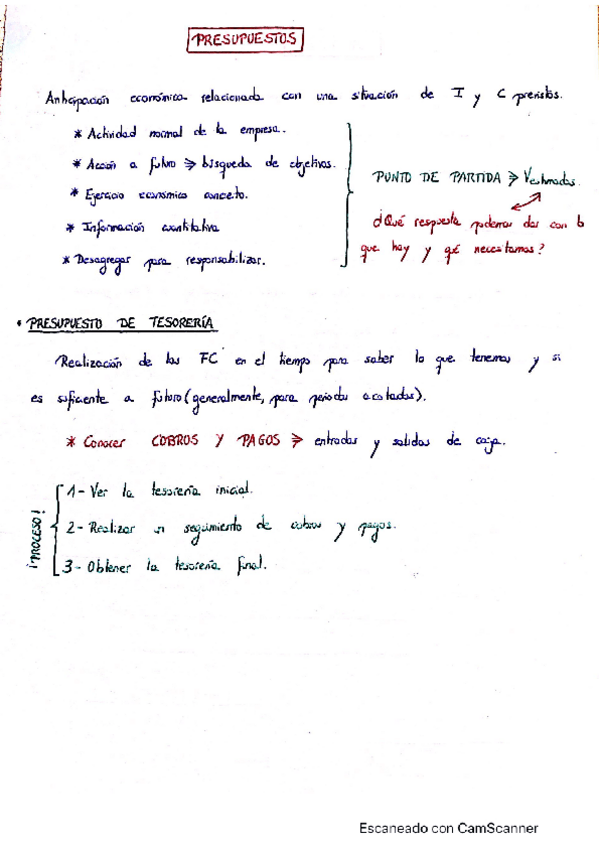 PRESUPUESTOS
Anticipación económica relacionada con una situación de I y C previstos.
* Actividad normal de la empresa.
* Acción a futuro => búsqueda de objetivos.
* Ejercicio económico concreto.
* Información cuantitativa
* Desagregar para responsabilizar.
PUNTO DE PARTIDA => V estimadas.
¿Qué respuesta podemos dar con lo
que hay y qué necesitamos?
• PRESUPUESTO DE TESORERÍA
Realización de los FC en el tiempo para saber lo que tenemos y si
es suficiente a futuro (generalmente, para periodos acotados).
* Conocer COBROS Y PAGOS => entradas y salidas de caja.
¡PROCESO!
1- Ver la tesorería inicial.
2- Realizar un seguimiento de cobros y pagos.
3- Obtener la tesorería final.
Escaneado con CamScanner